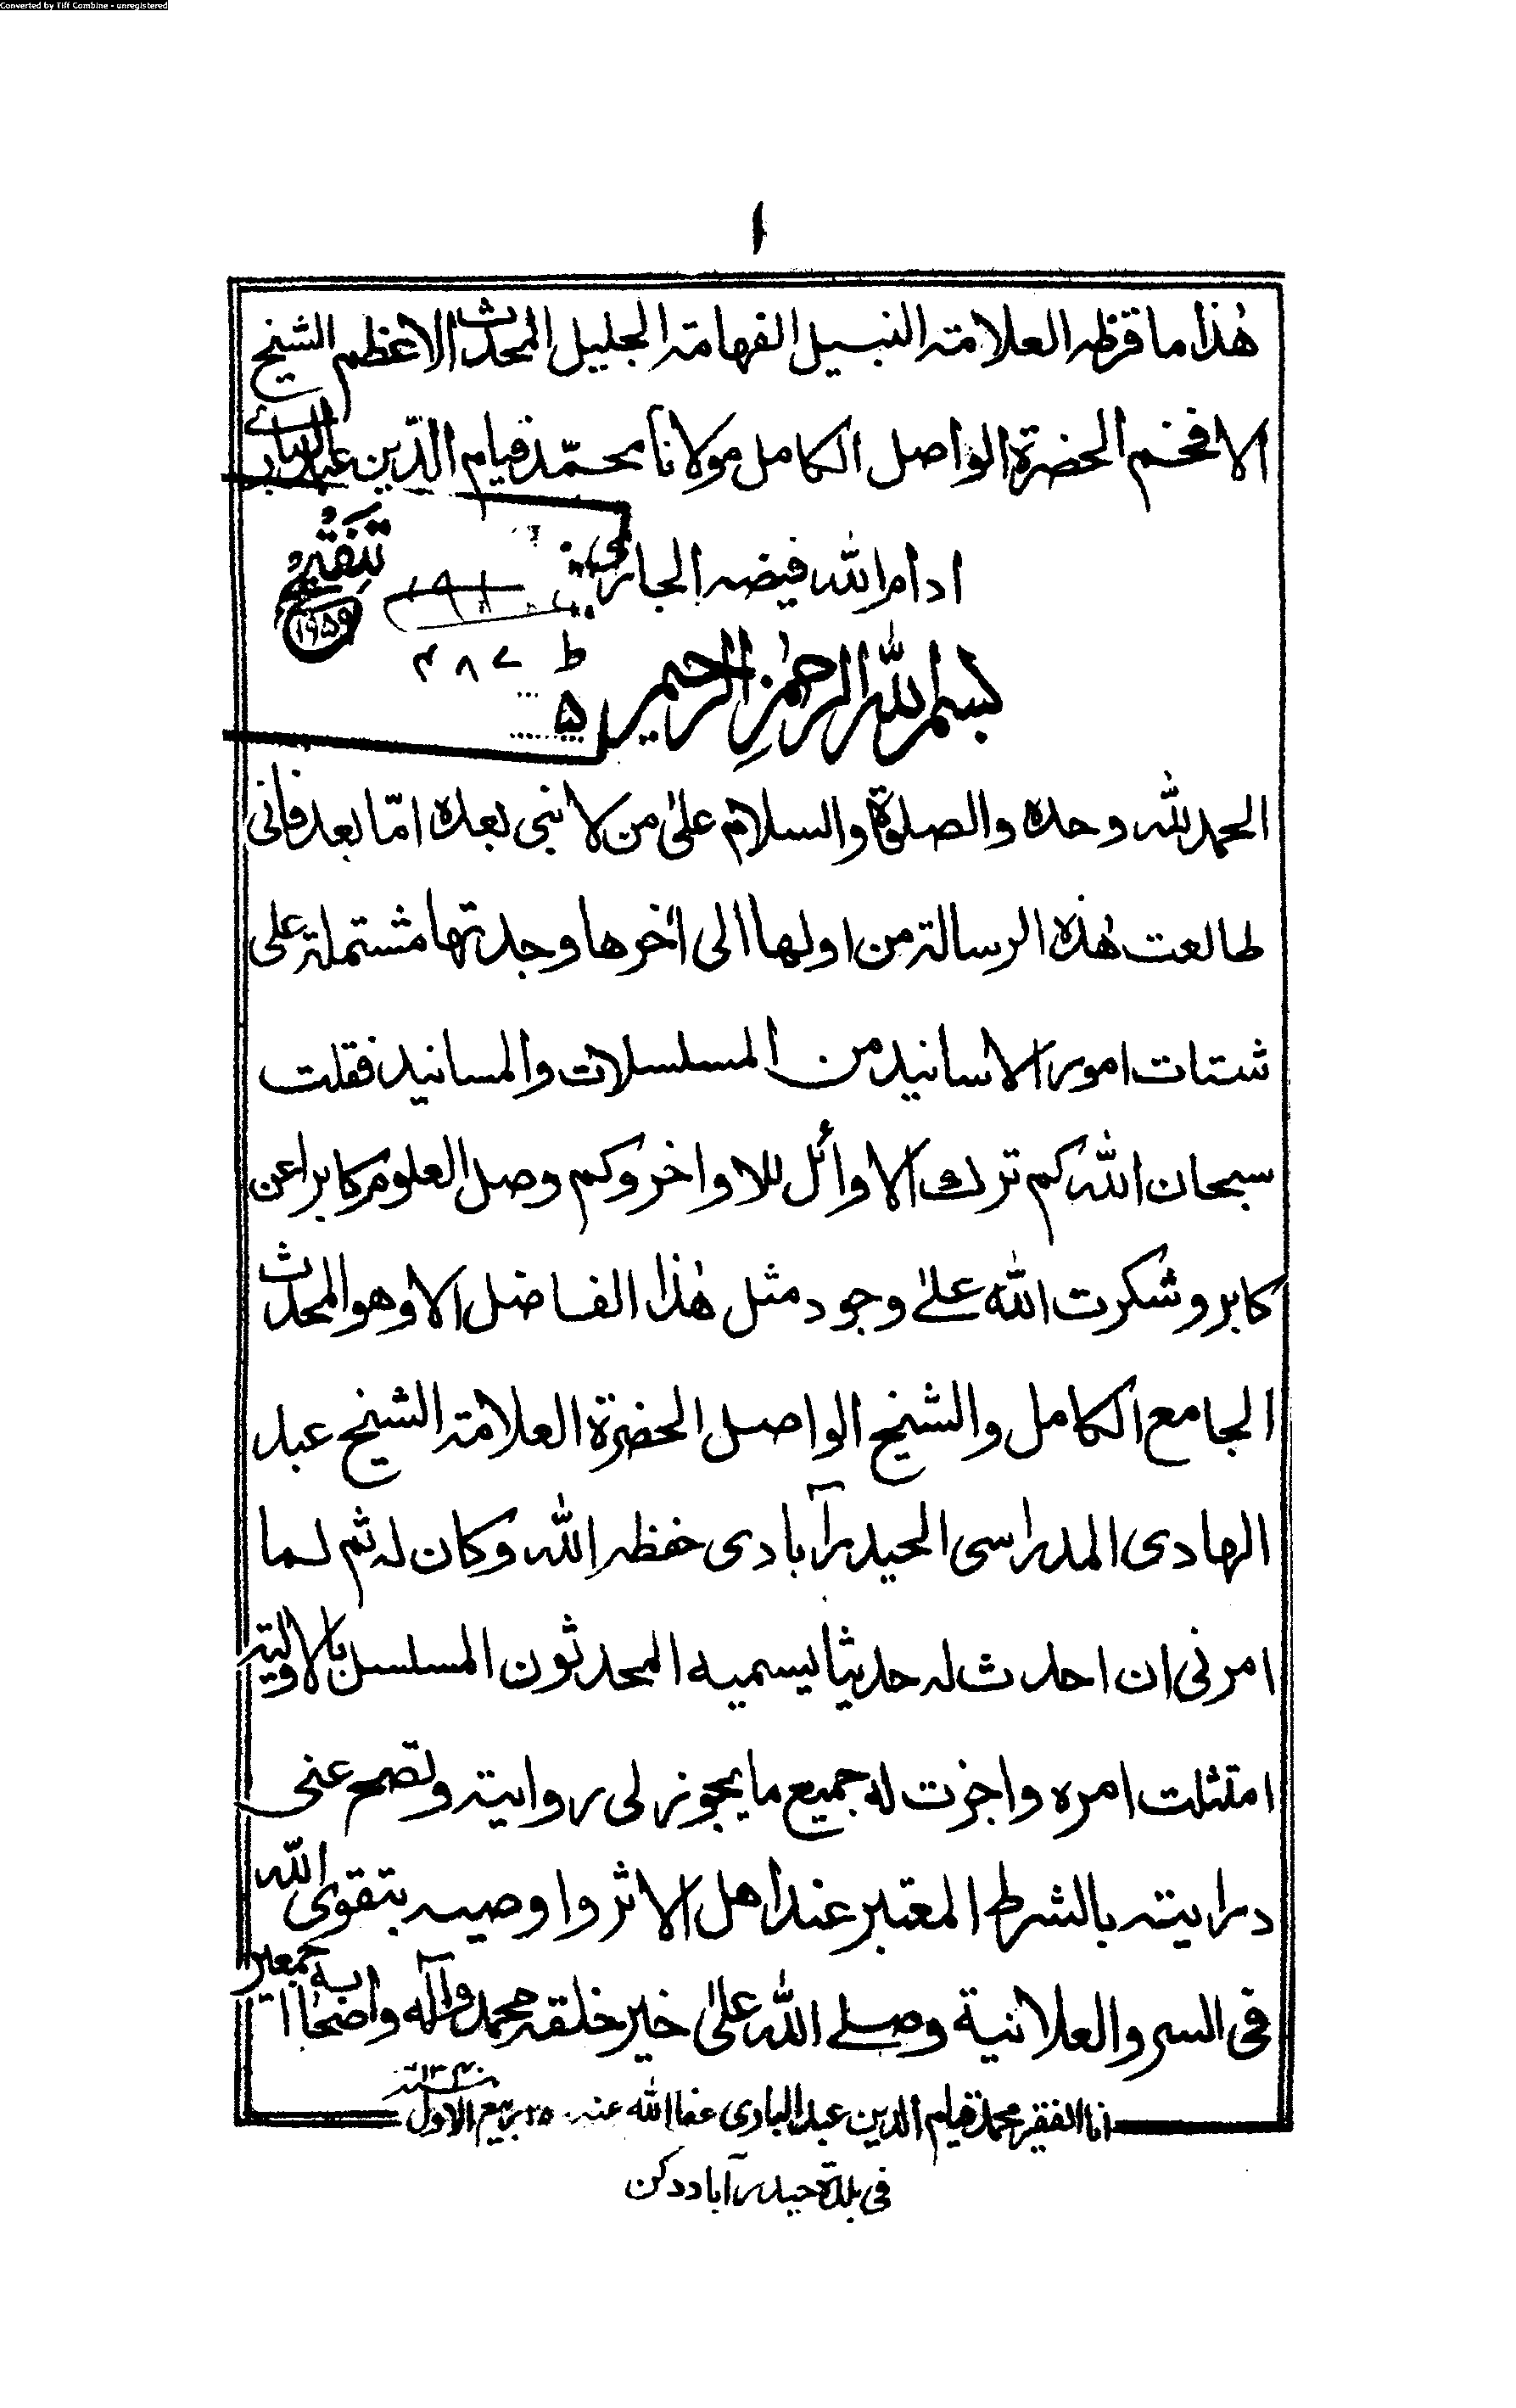 Converted by Tiff Combine - unregistered
١
هٰذا ما قرظه العلامة النبيل الفهامة الجليل المحدث الاعظم الشيخ
الافخم الحضرة الواصل الكامل مولانا محمّد قيام الدّين عبد البارے
ادام الله فيضه الجاری
تنقيح
١٩٥٩
ط ٤٨٧
٥
بسم الله الرحمٰن الرحيم
الحمد لله وحده والصلوة والسلام علىٰ من لا نبی بعده امّا بعد فانی
طالعت هٰذه الرسالة من اولها الى اٰخرها وجدتها مشتملة على
شتات امور الاسانيد من المسلسلات والمسانيد فقلت
سبحان الله كم ترك الاوائل للاواخر وكم وصل العلوم كابرا عن
كابر وشكرت الله علىٰ وجود مثل هٰذا الفاضل الا وهو المحدث
الجامع الكامل والشيخ الواصل الحضرة العلامة الشيخ عبد
الهادی المدراسی الحيدرآبادی حفظه الله وكان له ثم لما
امرنی ان احدث له حديثا يسميه المحدثون المسلسل بالاولية
امتثلت امره واجزت له جميع ما يجوز لی روايته وتصح عنی
درايته بالشرط المعتبر عند اهل الاثر واوصيه بتقوی الله
فی السر والعلانية وصلے الله علىٰ خير خلقه محمد وآله واصحابه اجمعين
انا الفقير محمد قيام الدين عبد الباری عفا الله عنه ٢٥ ربيع الاول سنة ١٣٣٠
فی بلدة حيدرآباد دكن